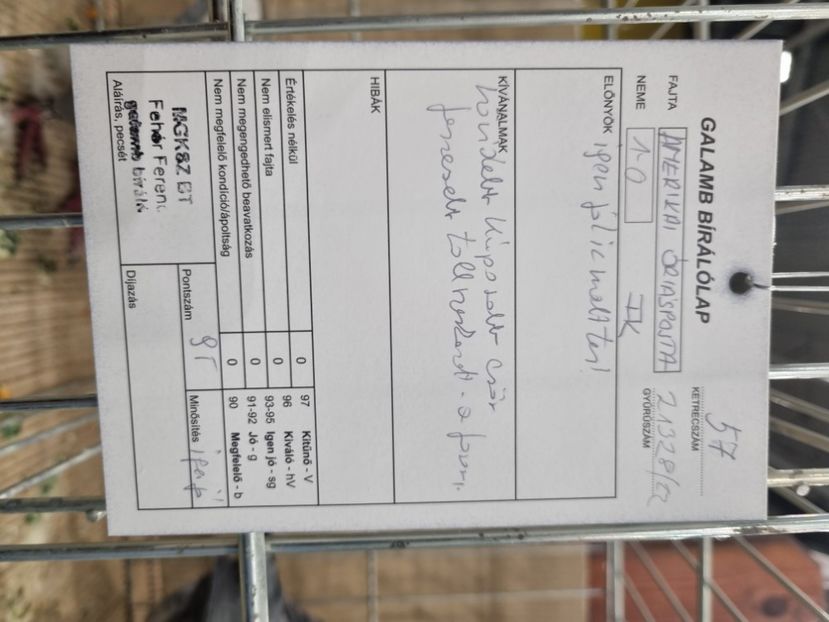 GALAMB BÍRÁLÓLAP
57
KETRECSZÁM
FAJTA AMERIKAI ÓRIÁSPOSTA
NEME 1-0
21328/
GYŰRŰSZÁM
ELŐNYÖK igen jól
KÍVÁNALMAK
csőr
feszesebb
HIBÁK
Értékelés nélkül 0
Nem elismert fajta 0
Nem megengedhető beavatkozás 0
Nem megfelelő kondíció/ápoltság 0
97 Kitűnő - V
96 Kiváló - hV
93-95 Igen jó - sg
91-92 Jó - g
90 Megfelelő - b
MGKSZ BT
Fehér Ferenc
galamb bíráló
Aláírás, pecsét
Pontszám 95
Minősítés
Díjazás